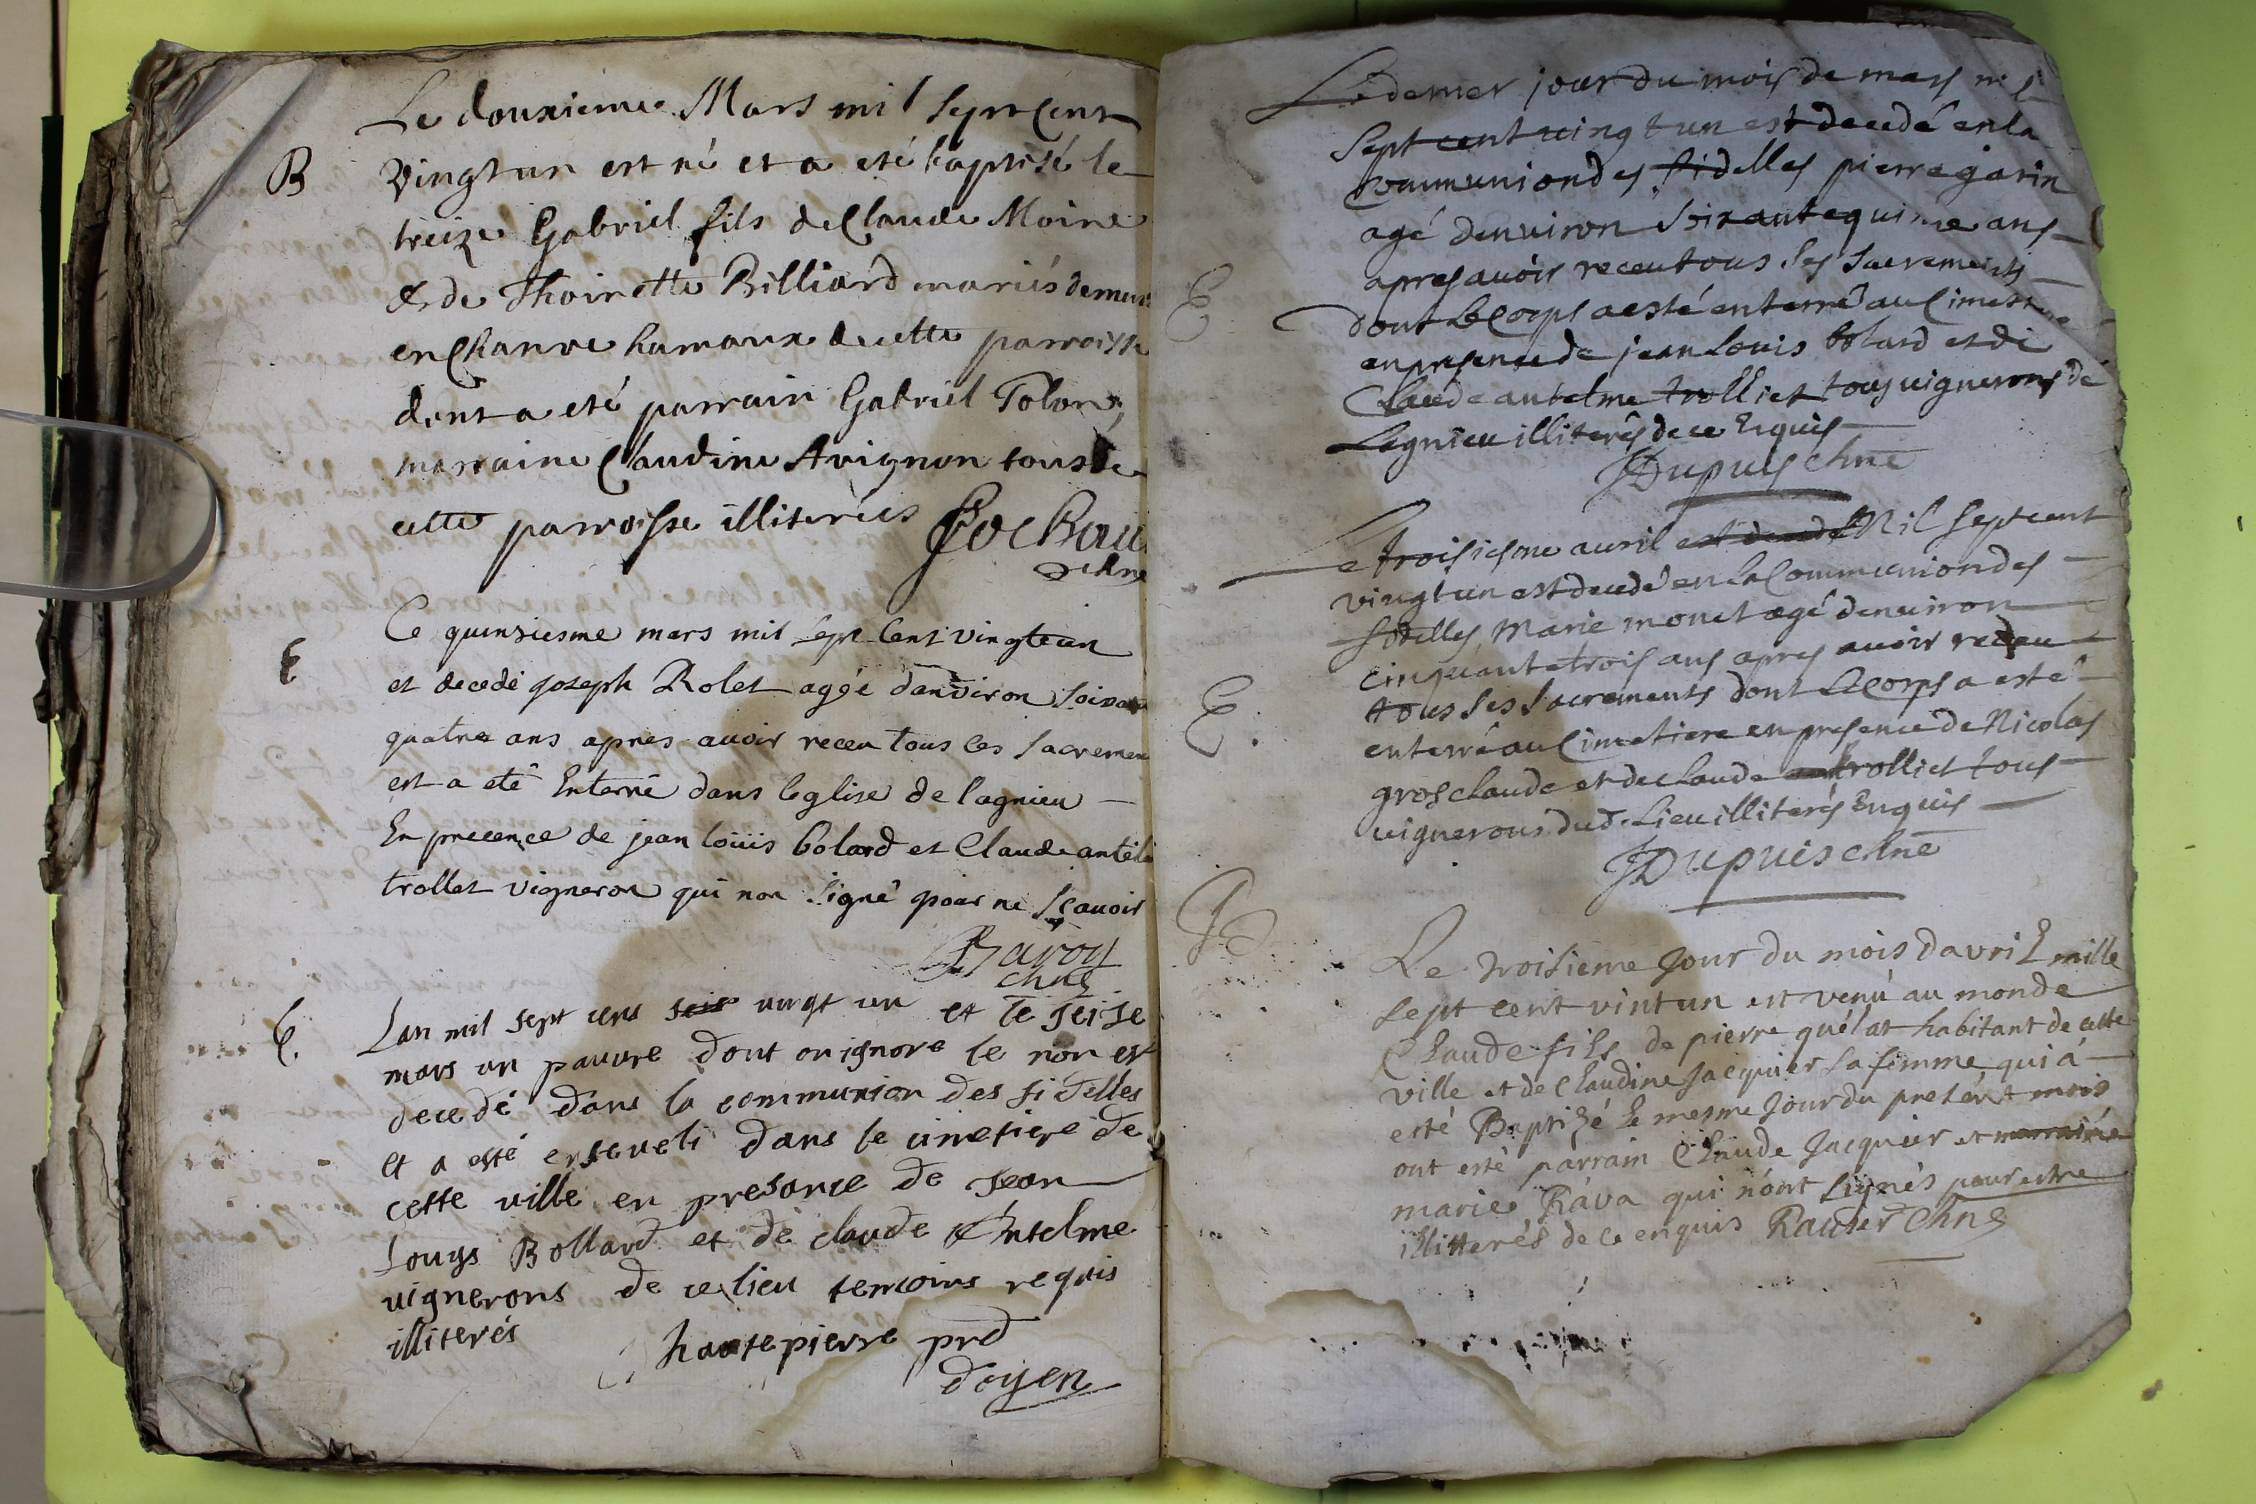 Le douxieme Mars mil sept Cent
B
vingt un est né et a eté baptisé le
treize Gabriel fils de Claude Moine
& de Thoinette Billiard mariés demeur
en Chanve hamaux de cette parroisse
dont a eté parrain Gabriel Tolon
marraine Claudine Avignon tous de
cette parroisse illiterés
chne
Ce quinsiesme mars mil sept Cent vingt un
E
et decedé joseph Rolet agée danviron soixan
quatre ans apres avoir receu tous les sacremen
est a eté Enterré dans leglise de lagnieu
En precence de jean louis bolard et Claude antel
trollet vigneron qui non signé pour ne sçavoir
Baron
chne
Lan mil sept cens seis vingt un et le seise
E.
mars un pauvre dont on ignore le non est
decedé dans la communion des fidelles
et a esté enseveli dans le cimetiere de
cette ville en presance de Jean
Louys Bollard et de claude Antelme
vignerons de ce lieu temoins requis
illiterés
hautepierre prd
doyen
Le dernier jour du mois de mars mil
sept cent vingt un est decedé en la
communion des fidelles pierre garin
agé denuiron soixante quinze ans
apres auoir receu tous ses sacrements
E
dont le Corps a esté enterré au Cimestiere
en presence de jean Louis bolard et di
Claude antelme trolliet tous uignerons de
Lagnieu illiterés de ce Enquis
Dupuis chne
Le troisiesme auril est decedé Mil sept cent
vingt un est decedé en la Communion des
fidelles Marie monet agé denuiron
cinquante trois ans apres auoir receu
E.
tous ses sacrements dont le corps a esté
enterré au Cimetiere en presence de Nicolas
gros claude et de claude trolliet tous
uignerons dud. Lieu illiterés Enquis
Dupuis chne
Le troisieme Jour du mois davril mille
sept cent vint un est venu au monde
Claude fils de pierre quélat habitant de cette
ville et de Claudine Jacquier sa femme qui a
esté Baptizé le mesme Jour du present mois
ont esté parrain Claude Jacquier et marraine
marie Rava qui nont signés pour estre
illitterés de ce enquis Ravier Chne